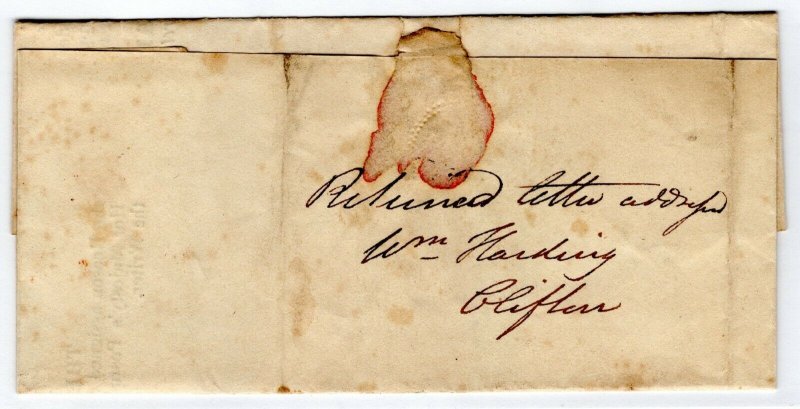 Returned letter addressed
Wm Harding
Clifton